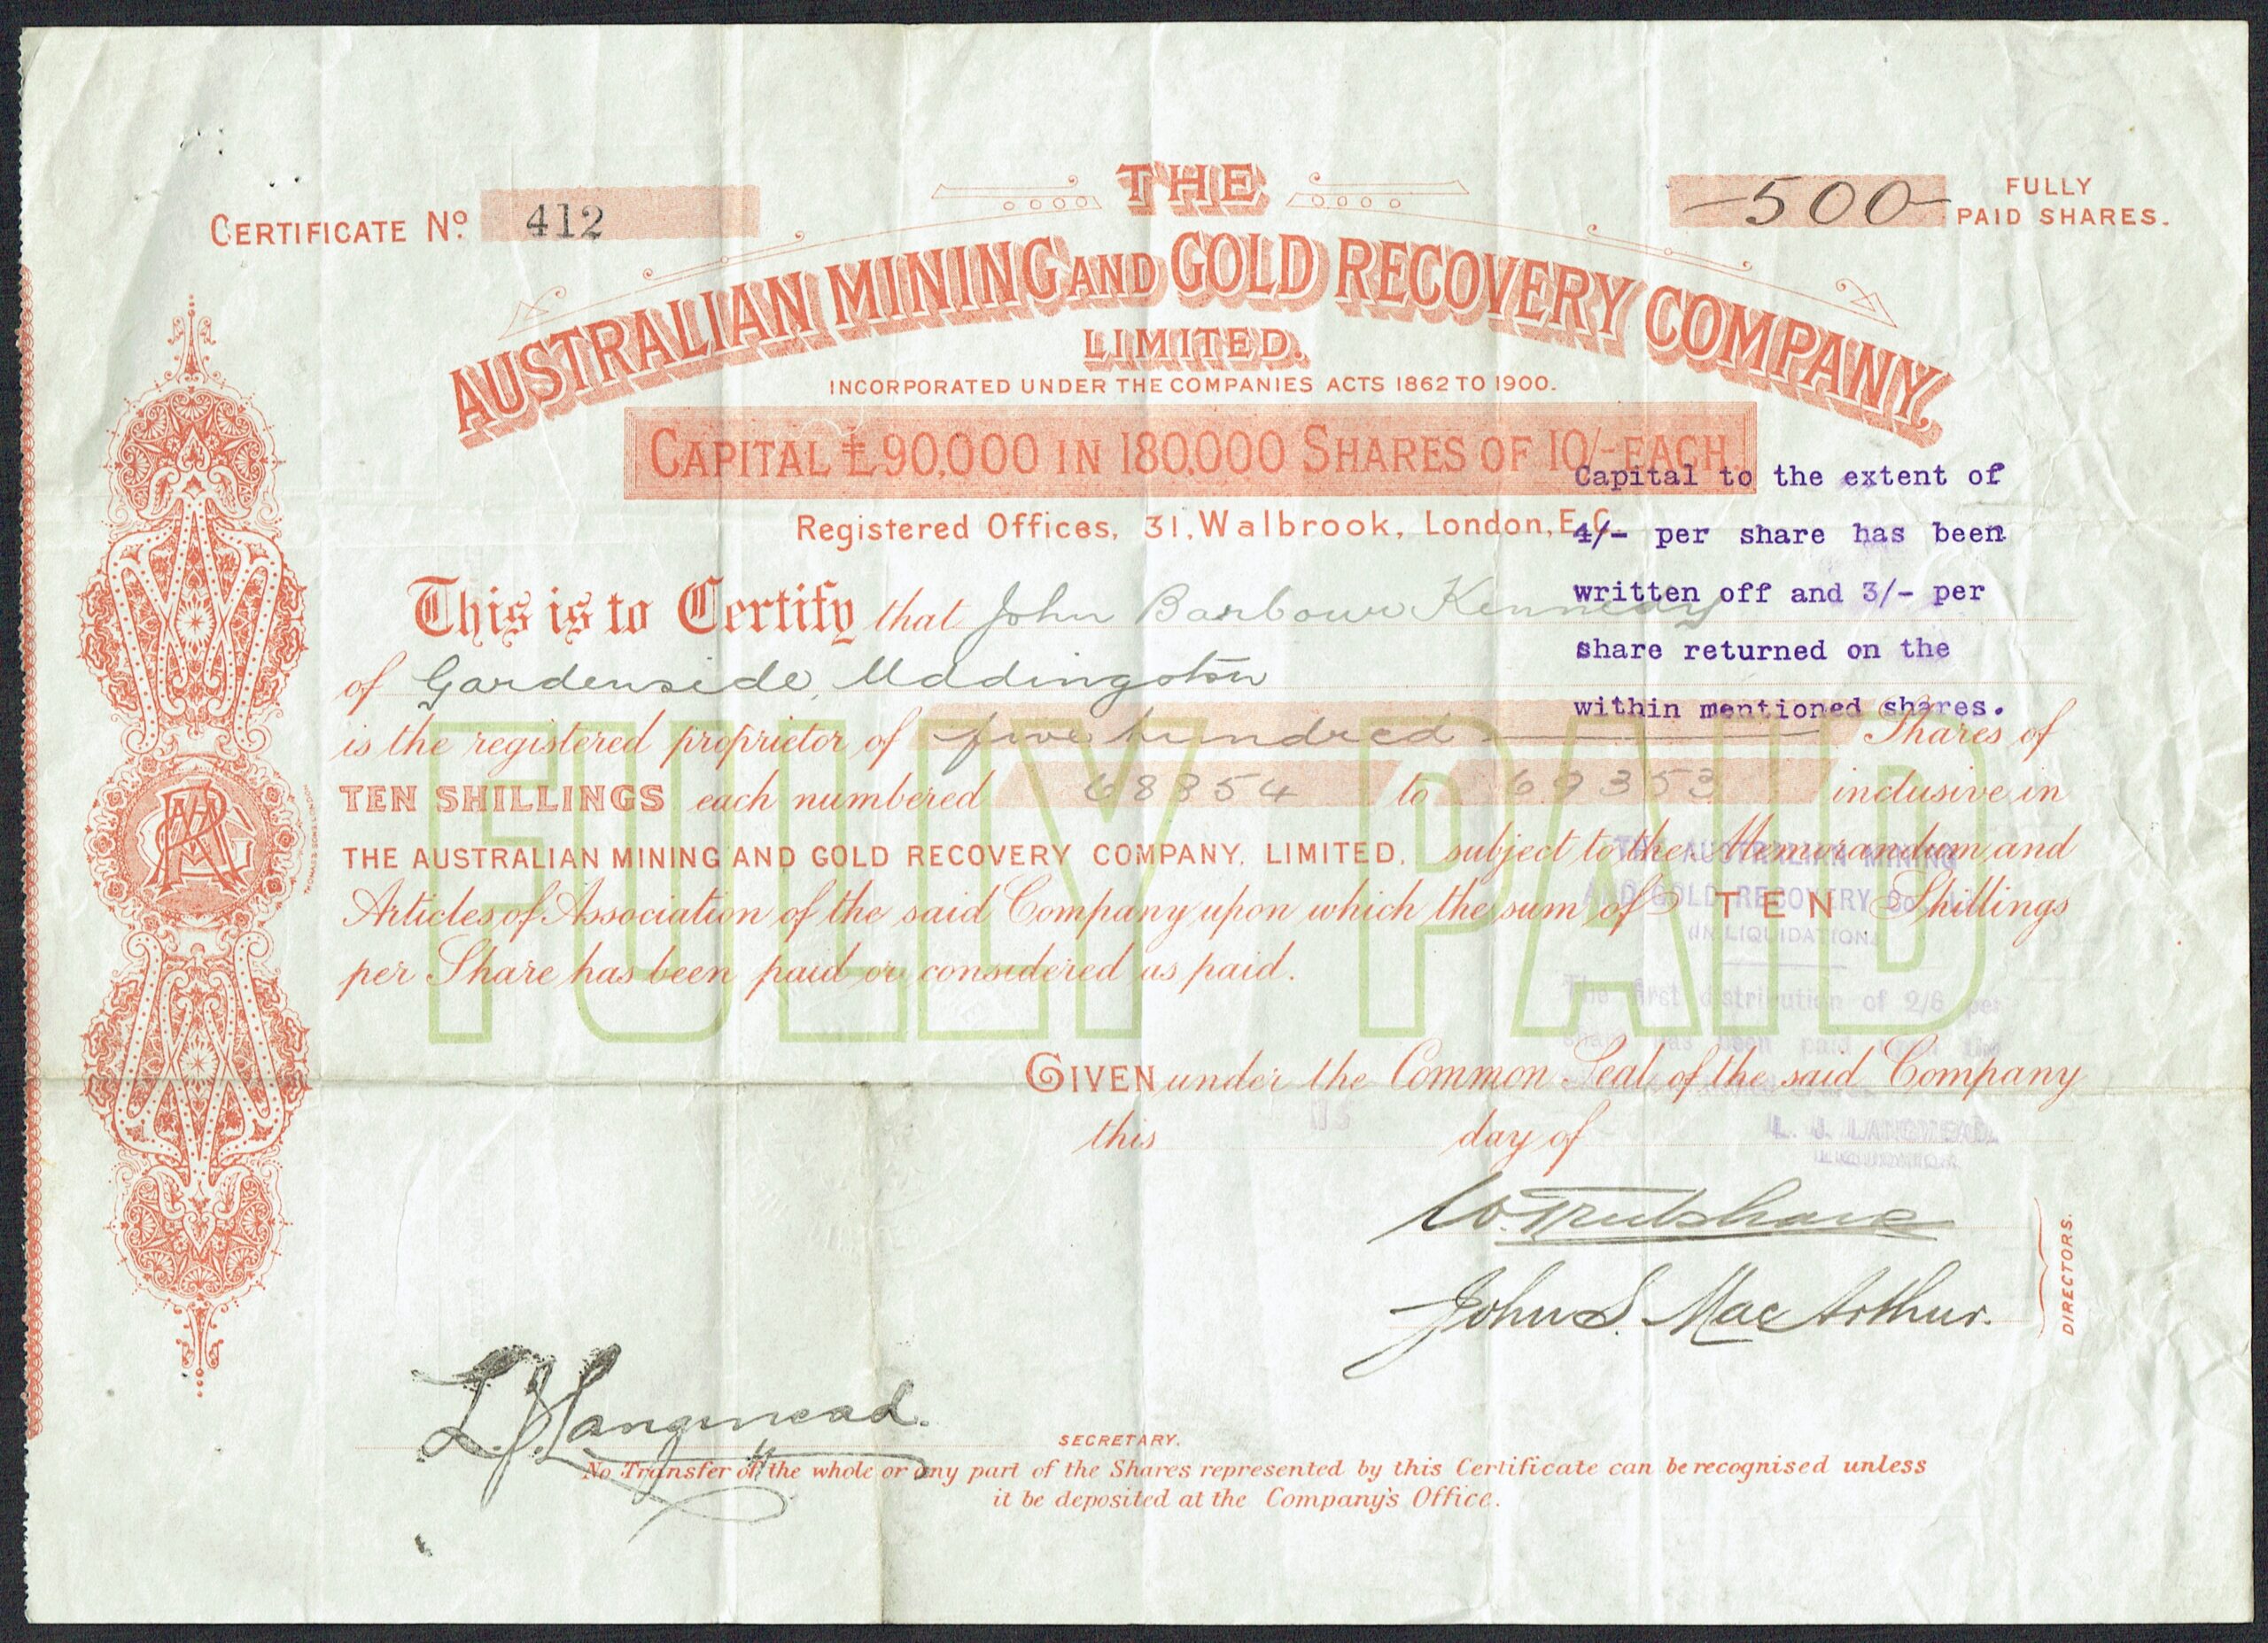 CERTIFICATE Nº 412
—500— FULLY
PAID SHARES.
THE
AUSTRALIAN MINING AND GOLD RECOVERY COMPANY,
LIMITED.
INCORPORATED UNDER THE COMPANIES ACTS 1862 TO 1900.
CAPITAL £90,000 IN 180,000 SHARES OF 10/- EACH
Registered Offices, 31, Walbrook, London, E.C.
Capital to the extent of
4/- per share has been
written off and 3/- per
share returned on the
within mentioned shares.
This is to Certify that John Barbour Kennedy
of Gardenside, Uddingston
is the registered proprietor of five hundred Shares of
TEN SHILLINGS each numbered 68854 to 69353 inclusive in
THE AUSTRALIAN MINING AND GOLD RECOVERY COMPANY, LIMITED, subject to the Memorandum and
Articles of Association of the said Company upon which the sum of TEN Shillings
per Share has been paid or considered as paid.
FULLY PAID
THE AUSTRALIAN MINING
AND GOLD RECOVERY Co.
(IN LIQUIDATION)
The first distribution of 2/6 per
share has been paid upon the
GIVEN under the Common Seal of the said Company
this day of
L. J. LANGMEAD,
LIQUIDATOR
John S. MacArthur.
DIRECTORS.
L. J. Langmead.
SECRETARY.
No Transfer of the whole or any part of the Shares represented by this Certificate can be recognised unless
it be deposited at the Company's Office.
THOMAS & SONS LONDON